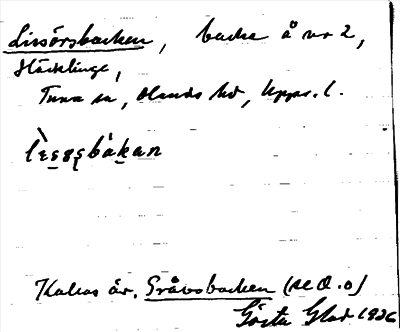 Lissörsbacken, backe å nr 2,
Häcklinge,
Tuna sn, Olands hd, Upps. l.
lèsǫsbákan
Kallas äv. Gråvsbacken (se d. o)
Gösta Glad 1926